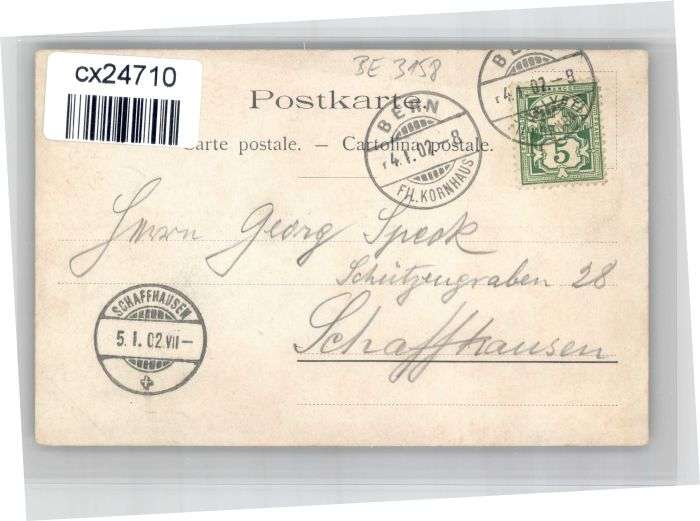 cx24710
BE 3158
Postkarte.
Carte postale. — Cartolina postale.
BERN
4.I.02.-8
FIL.KORNHAUS
BERN
4.I.02.-8
5
Herrn Georg Speck
Schützengraben 28
Schaffhausen
SCHAFFHAUSEN
5.I.02.VII-